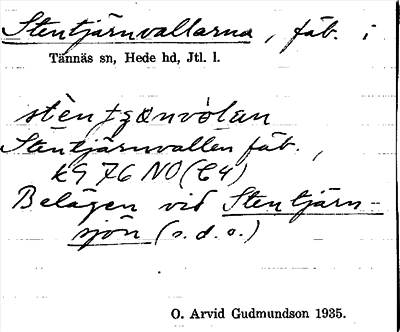 Stentjärnvallarna, fäb. i
Tännäs sn, Hede hd, Jtl. l.
Stentjärnvallen fäb.,
k9 76 NO (C4)
Belägen vid Stentjärn-
sjön (s.d.o.)
O. Arvid Gudmundson 1935.